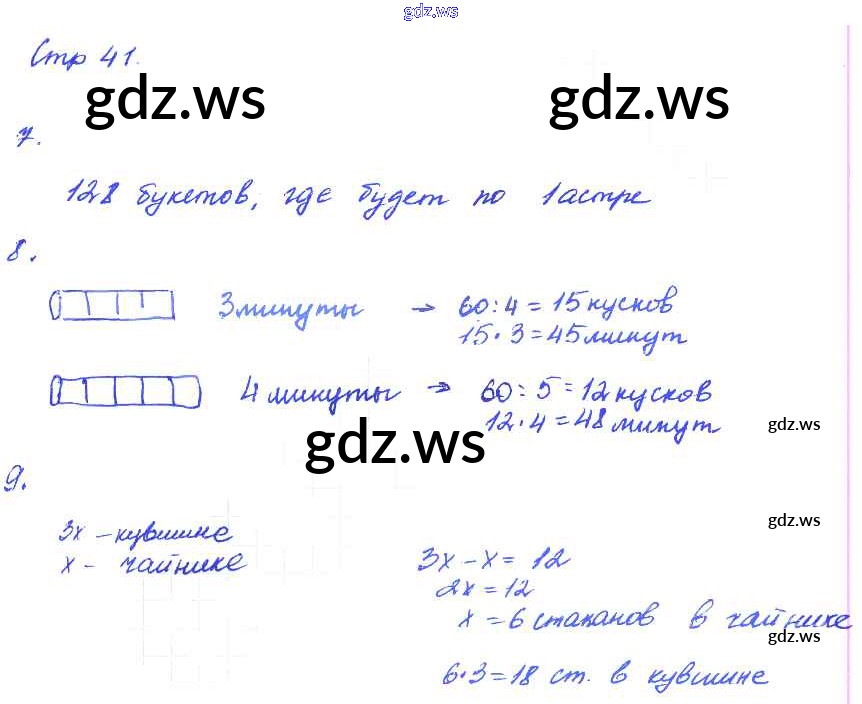 gdz.ws
Стр 41.
gdz.ws gdz.ws
7.
128 букетов, где будет по 1 астре
8.
3 минуты → 60:4=15 кусков
15·3=45 минут
4 минуты → 60:5=12 кусков
12·4=48 минут
gdz.ws
gdz.ws
9.
gdz.ws
3х - кувшине
х - чайнике
3х-х=12
2х=12
х=6 стаканов в чайнике
gdz.ws
6·3=18 ст. в кувшине